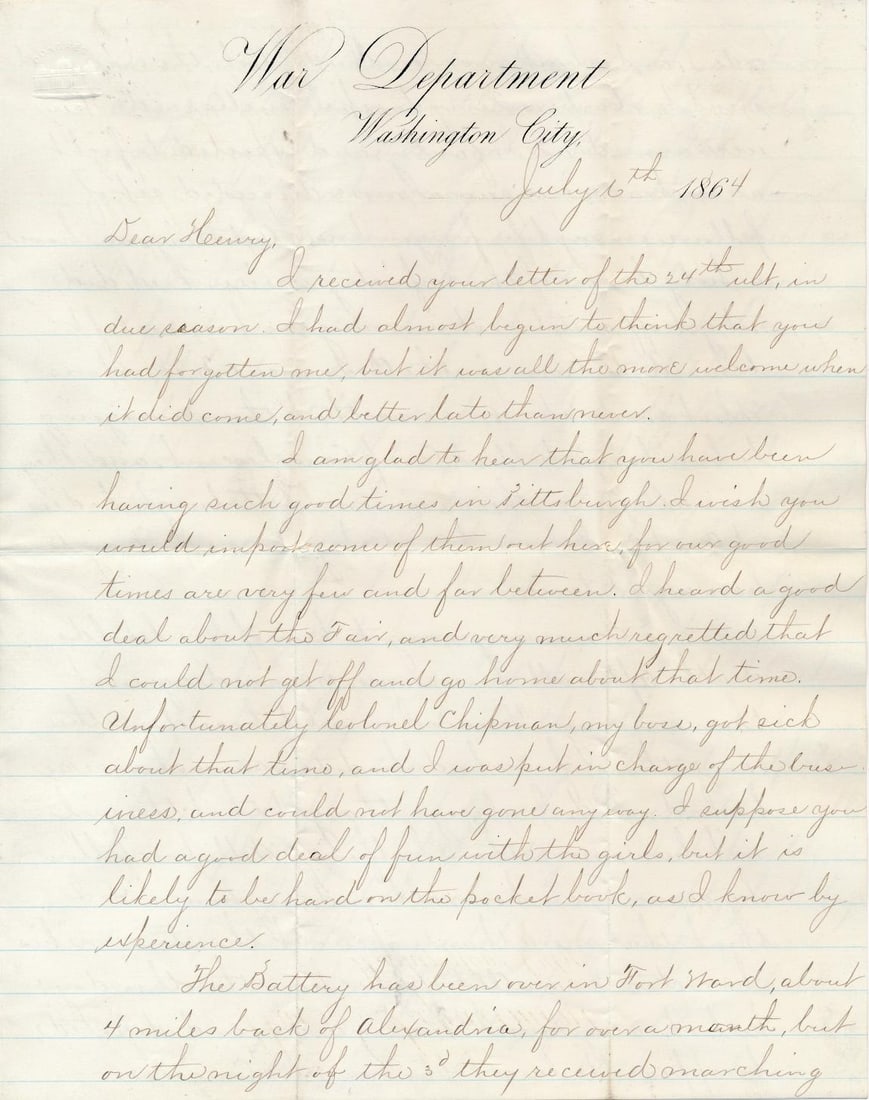 War Department
Washington City,
July 6th 1864
Dear Henry,
I received your letter of the 24th ult, in
due season. I had almost begun to think that you
had forgotten me, but it was all the more welcome when
it did come, and better late than never.
I am glad to hear that you have been
having such good times in Pittsburgh. I wish you
would import some of them out here, for our good
times are very few and far between. I heard a good
deal about the Fair, and very much regretted that
I could not get off and go home about that time.
Unfortunately Colonel Chipman, my boss, got sick
about that time, and I was put in charge of the bus-
iness, and could not have gone any way. I suppose you
had a good deal of fun with the girls, but it is
likely to be hard on the pocket book, as I know by
experience.
The Battery has been over in Fort Ward, about
4 miles back of Alexandria, for over a month, but
on the night of the 3d they received marching